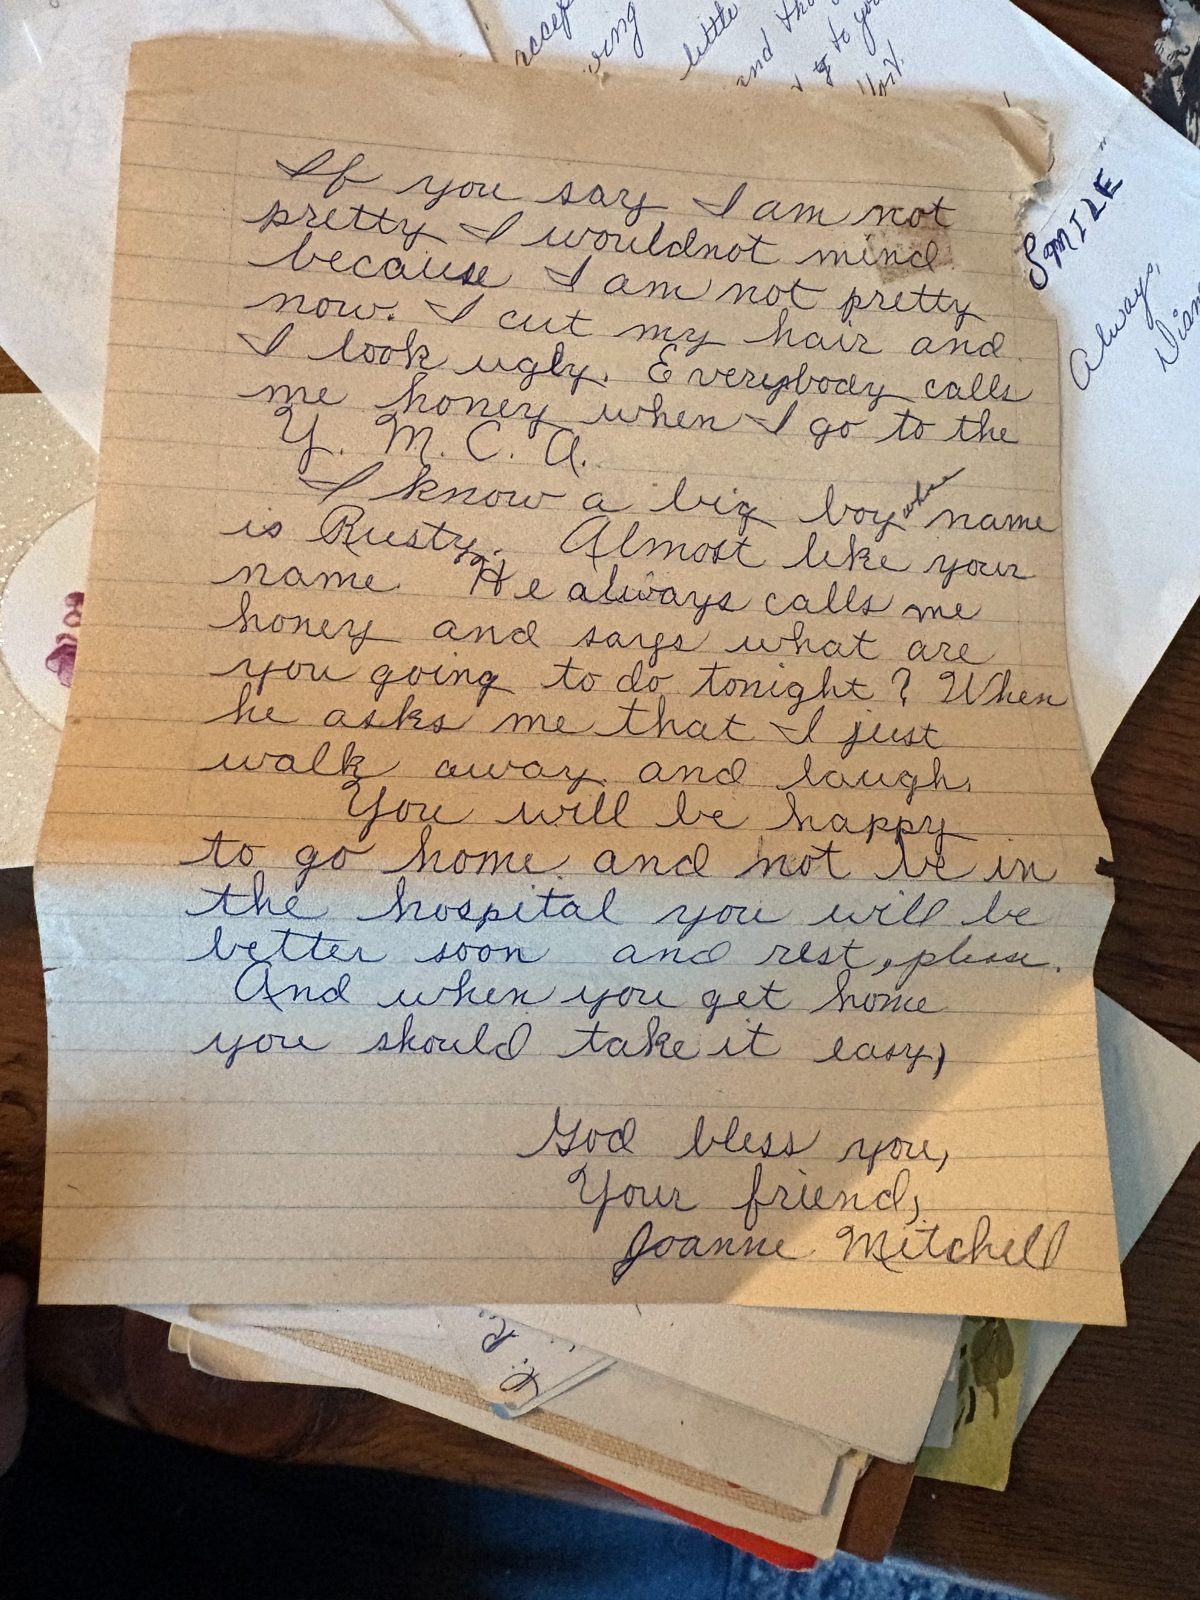 accep
ring
little
and tha
to you
Unit.
"SMILE"
Always,
Dian
If you say I am not
pretty I wouldnot mind
because I am not pretty
now. I cut my hair and
I look ugly. Everybody calls
me honey when I go to the
Y. M. C. A.
I know a big boy whose name
is Rusty. Almost like your
name. He always calls me
honey and says what are
you going to do tonight? When
he asks me that I just
walk away and laugh.
You will be happy
to go home and not be in
the hospital you will be
better soon and rest, please.
And when you get home
you should take it easy,
God bless you,
Your friend,
Joanne Mitchell